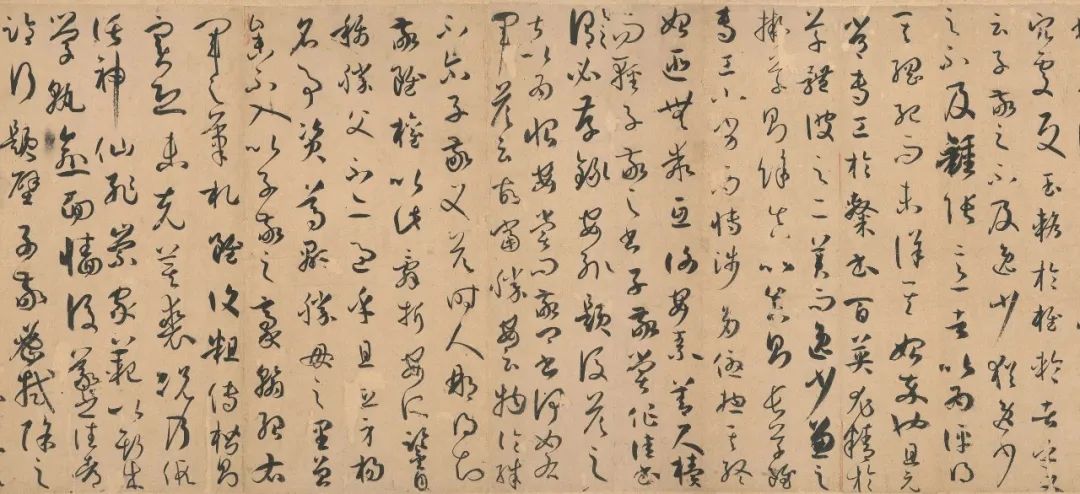 穴處反玉輅於椎輪者乎又
云子敬之不及逸少猶逸少
之不及鍾張意者以為評得
其綱紀而未詳其始卒也且元
常專工於隸書百英尤精於
草體彼之二美而逸少兼之
擬草則餘真比真則長草雖
專工小劣而博涉多優總其終
始匪無乖互謝安素善尺牘
而輕子敬之書子敬嘗作佳書
與之謂必存錄安輒題後答之
甚以為恨安嘗問敬卿書何如右
軍答云故當勝安云物論殊
不爾子敬又答時人那得知
敬雖權以此辭折安所鑒自
稱勝父不亦過乎且立身揚
名事資尊顯勝母之里曾
參不入以子敬之豪翰紹右
軍之筆札雖復粗傳楷則
實恐未克箕裘況乃假
託神仙恥崇家範以斯成
學孰愈面牆後羲之往都
臨行題壁子敬密拭除之